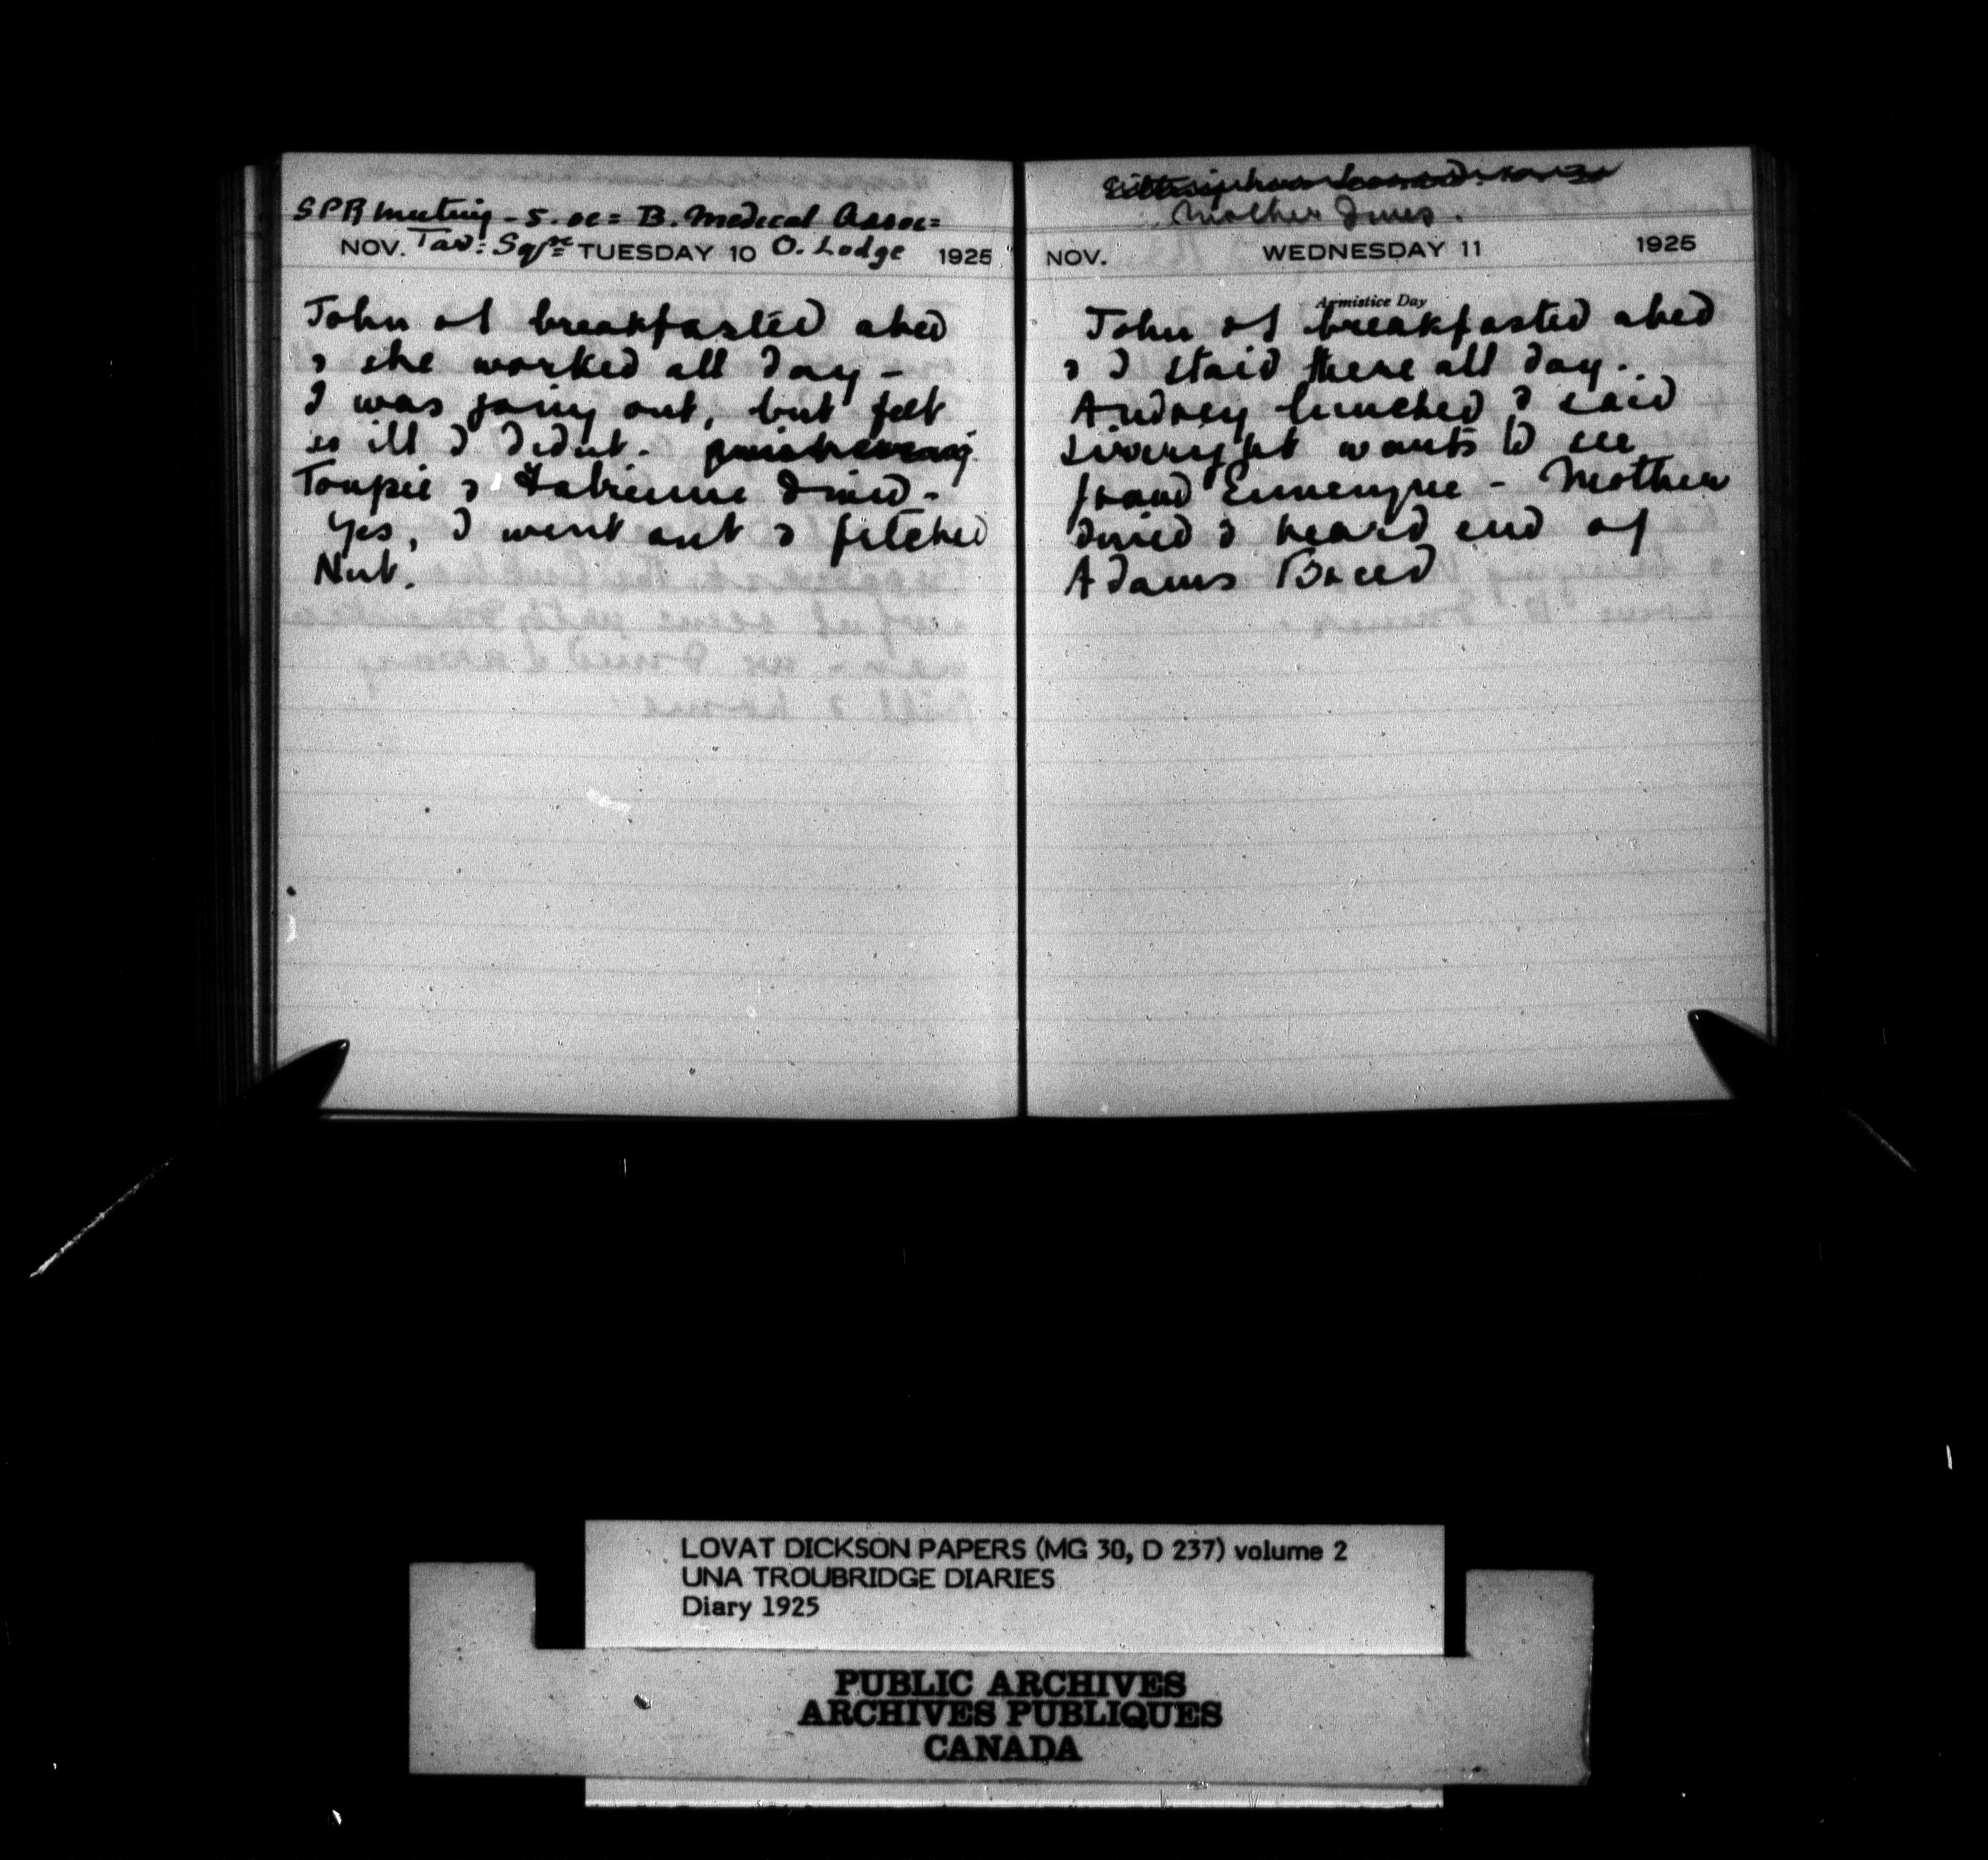 SPR meeting - 5. oc= B. Medical Assoc=
NOV. Tav: Sqre TUESDAY 10 O. Lodge 1925
John & I breakfasted abed
& she worked all day -
I was going out, but felt
so ill I didnt.
Toupie & Fabienne dined -
Yes, I went out & fetched
Nut.
Mother dines.
NOV. WEDNESDAY 11 1925
Armistice Day
John & I breakfasted abed
& I staid there all day.
Audrey lunched & said
Liveright wants to see
Mother
dined & heard end of
Adams Breed
LOVAT DICKSON PAPERS (MG 30, D 237) volume 2
UNA TROUBRIDGE DIARIES
Diary 1925
PUBLIC ARCHIVES
ARCHIVES PUBLIQUES
CANADA